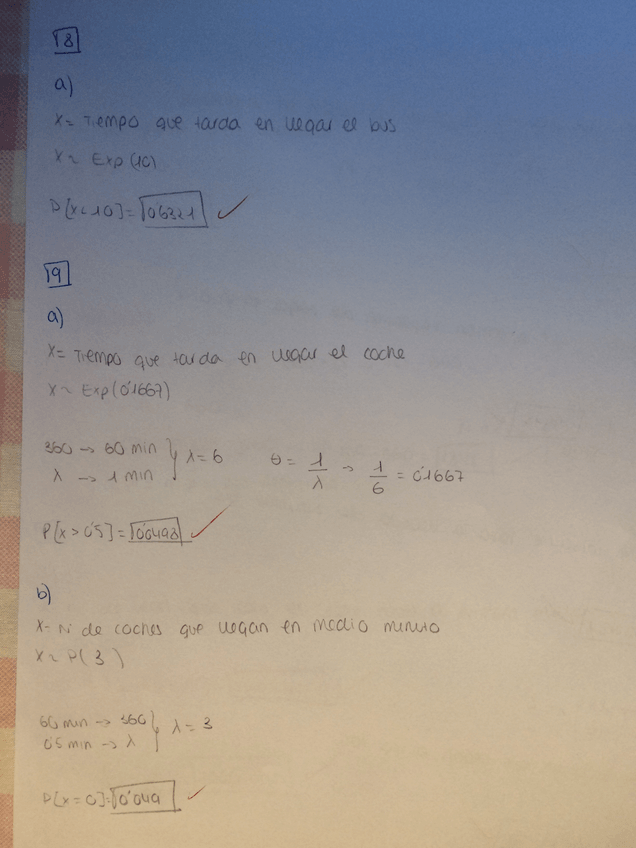 18
a)
X= Tiempo que tarda en llegar el bus
X ~ Exp(10)
P[X<10]= 0'6321 ✓
19
a)
X= Tiempo que tarda en llegar el coche
X ~ Exp(0'1667)
360 → 60 min } λ=6 θ = 1/λ → 1/6 = 0'1667
λ → 1 min
P[X>0'5]= 0'0498 ✓
b)
X= Nº de coches que llegan en medio minuto
X ~ P(3)
60 min → 360 } λ = 3
0'5 min → λ
P[X=0]= 0'049 ✓